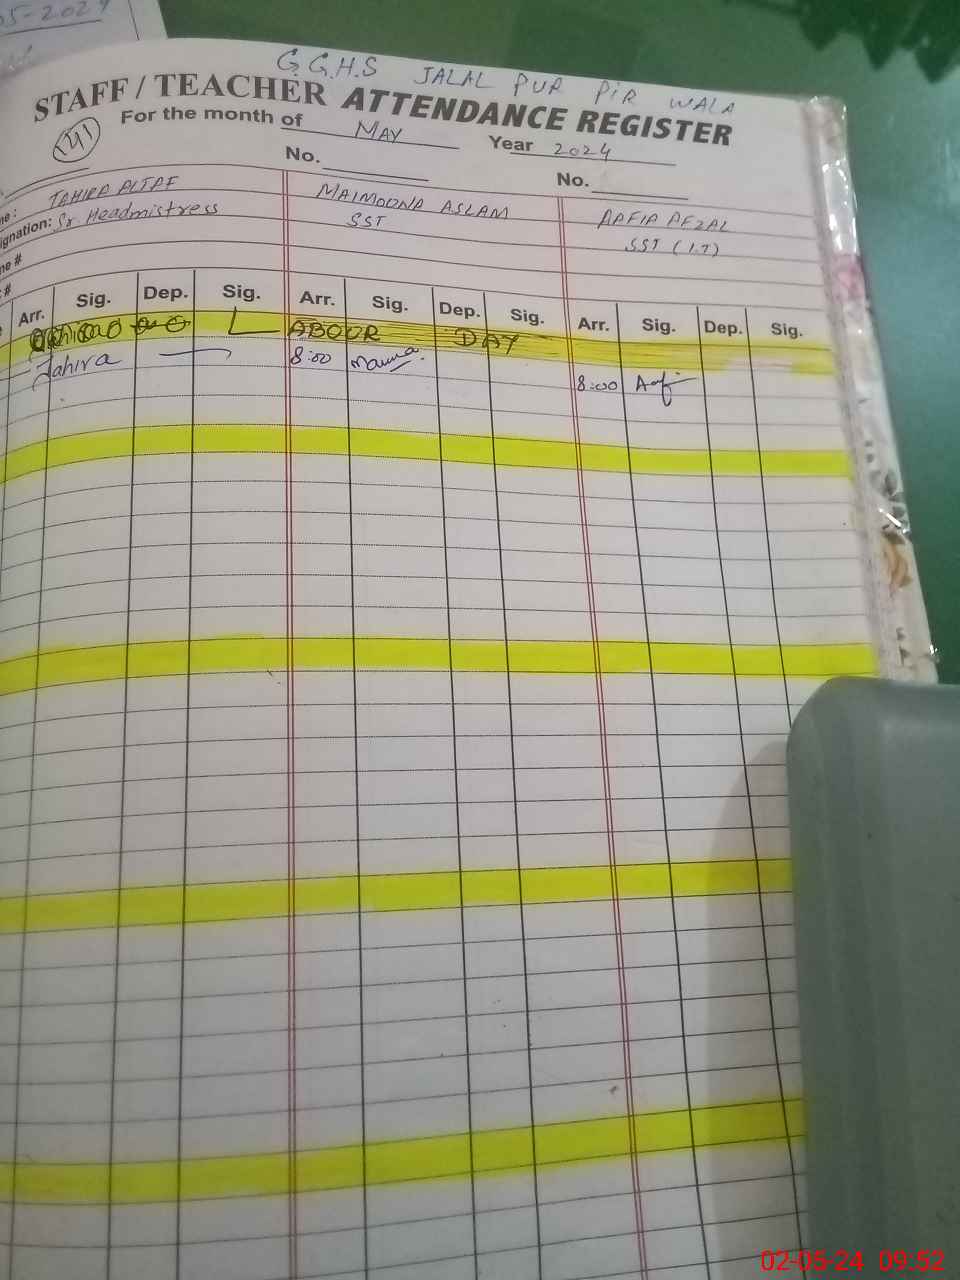 05-2024
G.G.H.S JALAL PUR PIR WALA
STAFF / TEACHER ATTENDANCE REGISTER
141
For the month of MAY Year 2024
No. No.
me: TAHIRA ALTAF MAIMOONA ASLAM AAFIA AFZAL
signation: Sr. Headmistress SST SST (I.T)
ne #
#
Arr. Sig. Dep. Sig. Arr. Sig. Dep. Sig. Arr. Sig. Dep. Sig.
L ABOUR DAY
Tahira 8:00
8:00
02-05-24 09:52